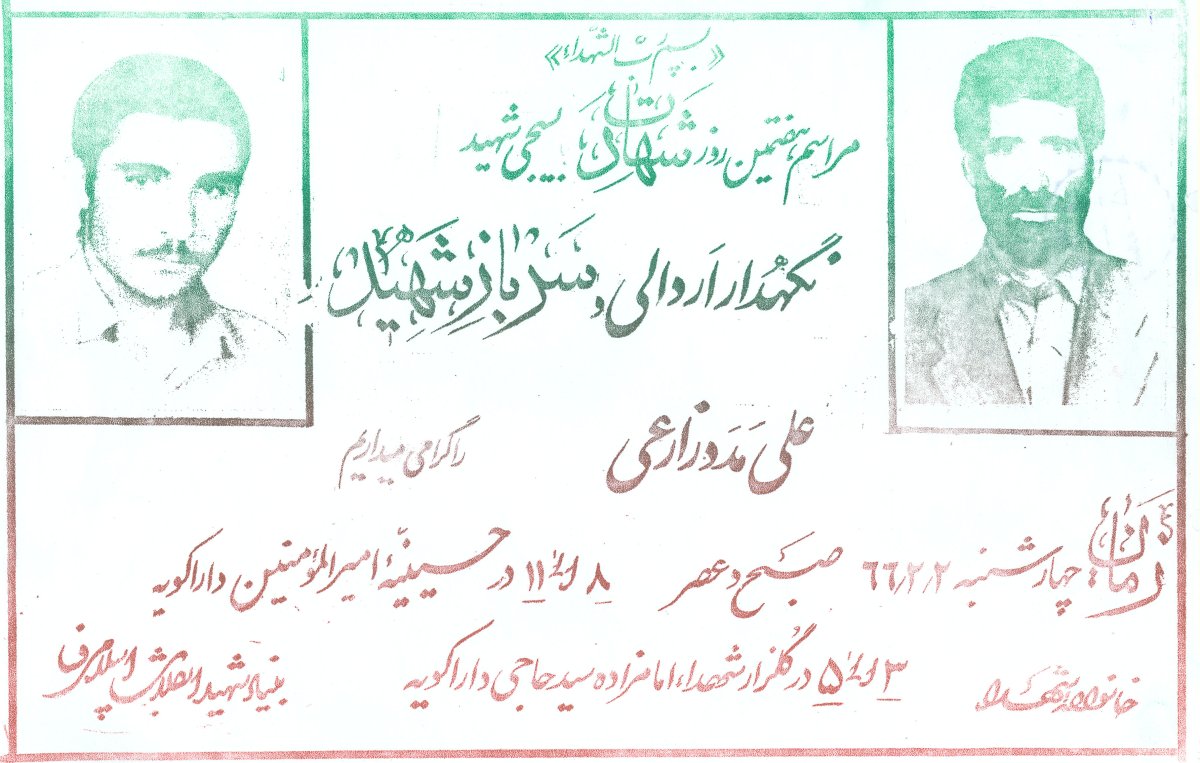 «بسم رب الشهداء»
مراسم هفتمین روز شهادت بسیجی شهید
نگهدار اردالی و سرباز شهید
علی مدد زارعی را گرامی میداریم
زمان: چهارشنبه ۶۶٫۲٫۲ صبح و عصر ۸ الی ۱۱ در حسینیهٔ امیرالمؤمنین داراکویه
۳ الی ۵ در گلزار شهداء امامزاده سید حاجی داراکویه
خانواده شهداء بنیاد شهید انقلاب اسلامی